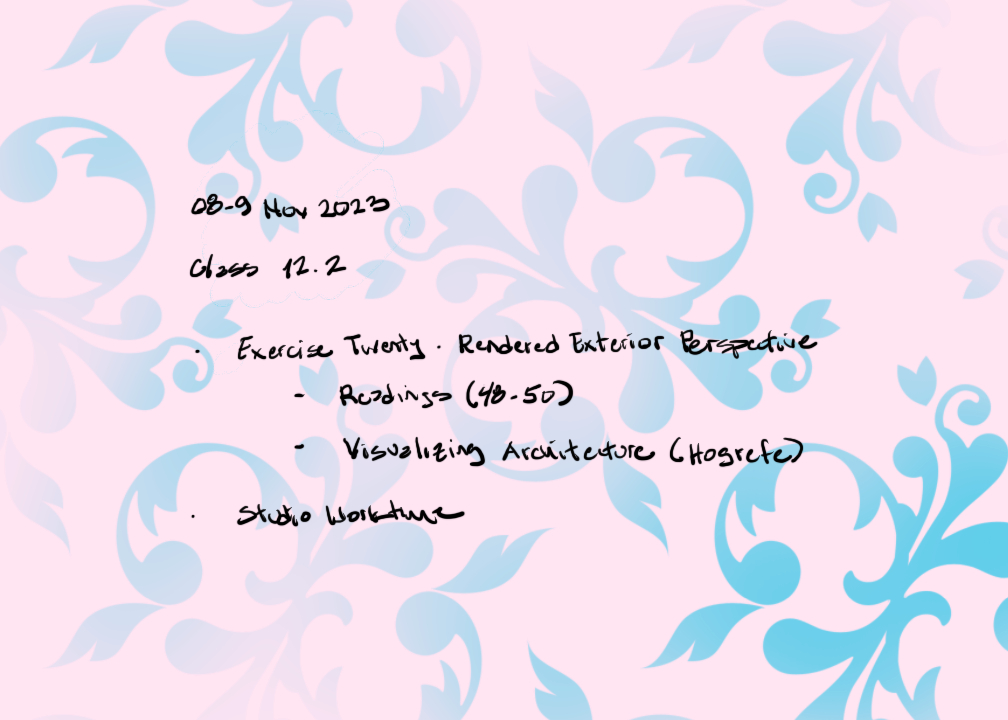 08-9 Nov 2023
Class 12.2
· Exercise Twenty · Rendered Exterior Perspective
- Readings (48-50)
- Visualizing Architecture (Hogrefe)
· Studio Worktime